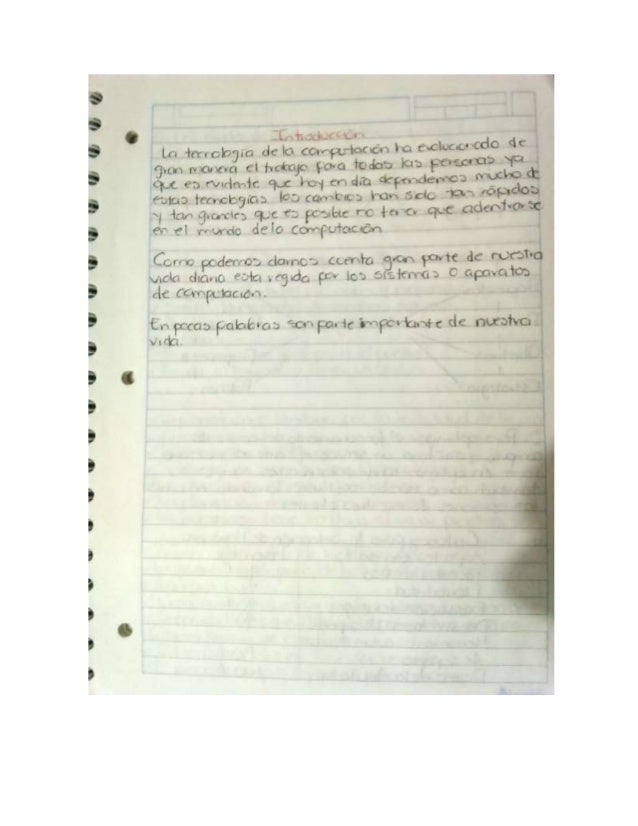 Introducción
La tecnología de la computación ha evolucionado de
gran manera el trabajo para todas las personas ya
que es evidente que hoy en día dependemos mucho de
estas tecnologías los cambios han sido tan rápidos
y tan grandes que es posible no tener que adentrarse
en el mundo de la computación
Como podemos darnos cuenta gran parte de nuestra
vida diaria esta regida por los sistemas o aparatos
de computación.
En pocas palabras son parte importante de nuestra
vida.